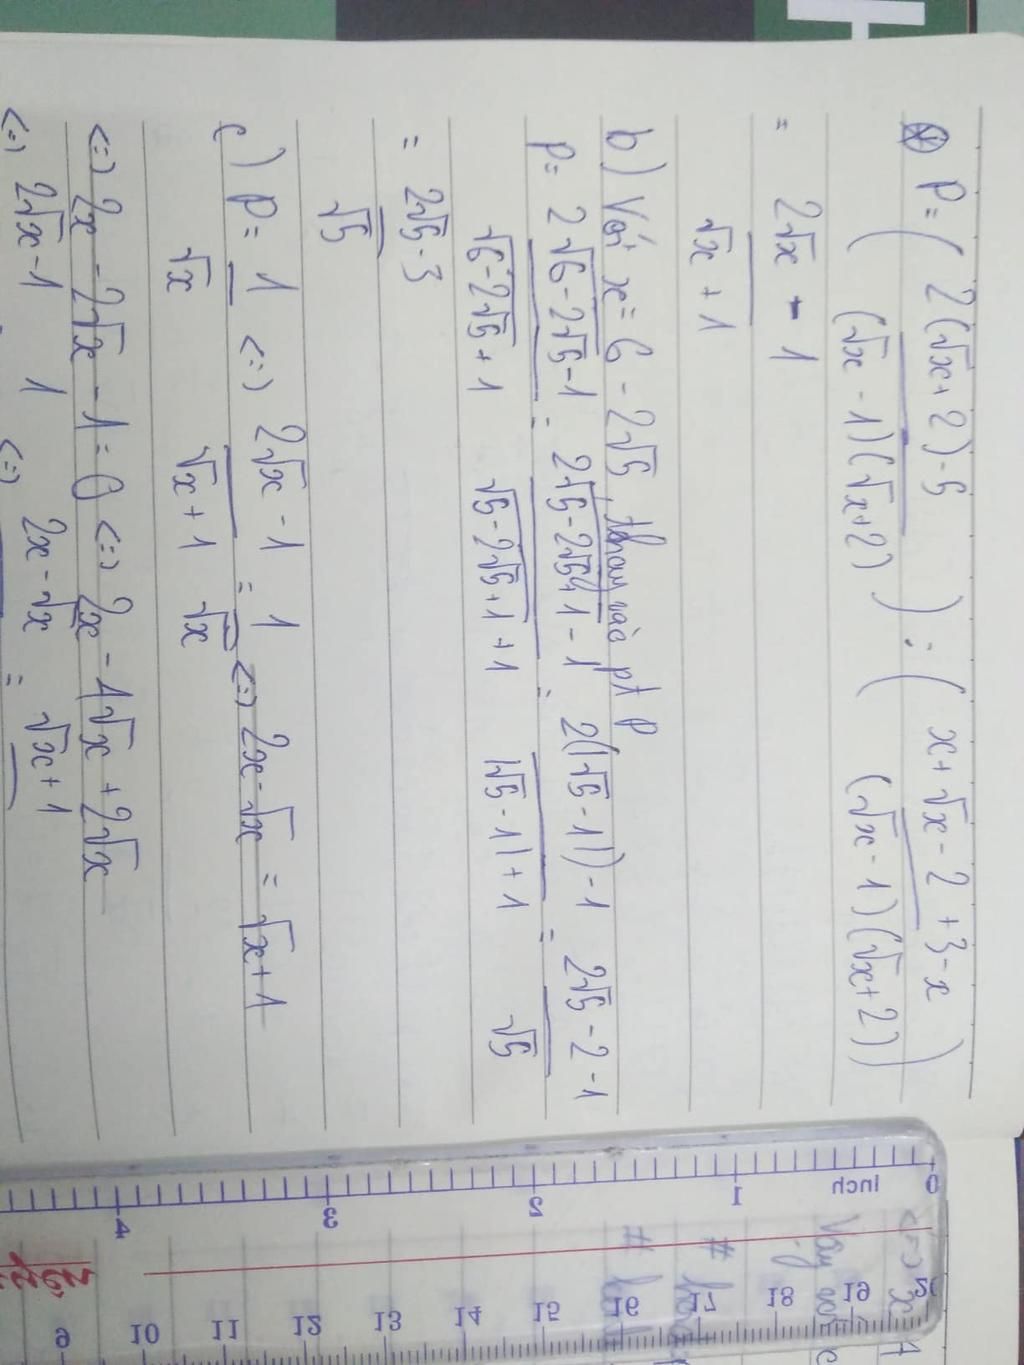 P = ( 2(√x + 2) - 5 / (√x - 1)(√x + 2) ) : ( x + √x - 2 + 3 - x / (√x - 1)(√x + 2) )
= 2√x - 1 / √x + 1
b) Với x = 6 - 2√5, thay vào pt P
P = 2√6-2√5 - 1 / √6-2√5 + 1 = 2√5-2√5+1 - 1 / √5-2√5+1 + 1 = 2(|√5 - 1|) - 1 / |√5 - 1| + 1 = 2√5 - 2 - 1 / √5
= 2√5 - 3 / √5
c) P = 1 / √x <=> 2√x - 1 / √x + 1 = 1 / √x <=> 2x - √x = √x + 1
<=> 2x - 2√x - 1 = 0 <=> 2x - 4√x + 2√x
<=> 2√x - 1 1 <=> 2x - √x = √x + 1
Inch
0 1 2 3 4
9 10 11 12 13 14 15 16 17 18 19